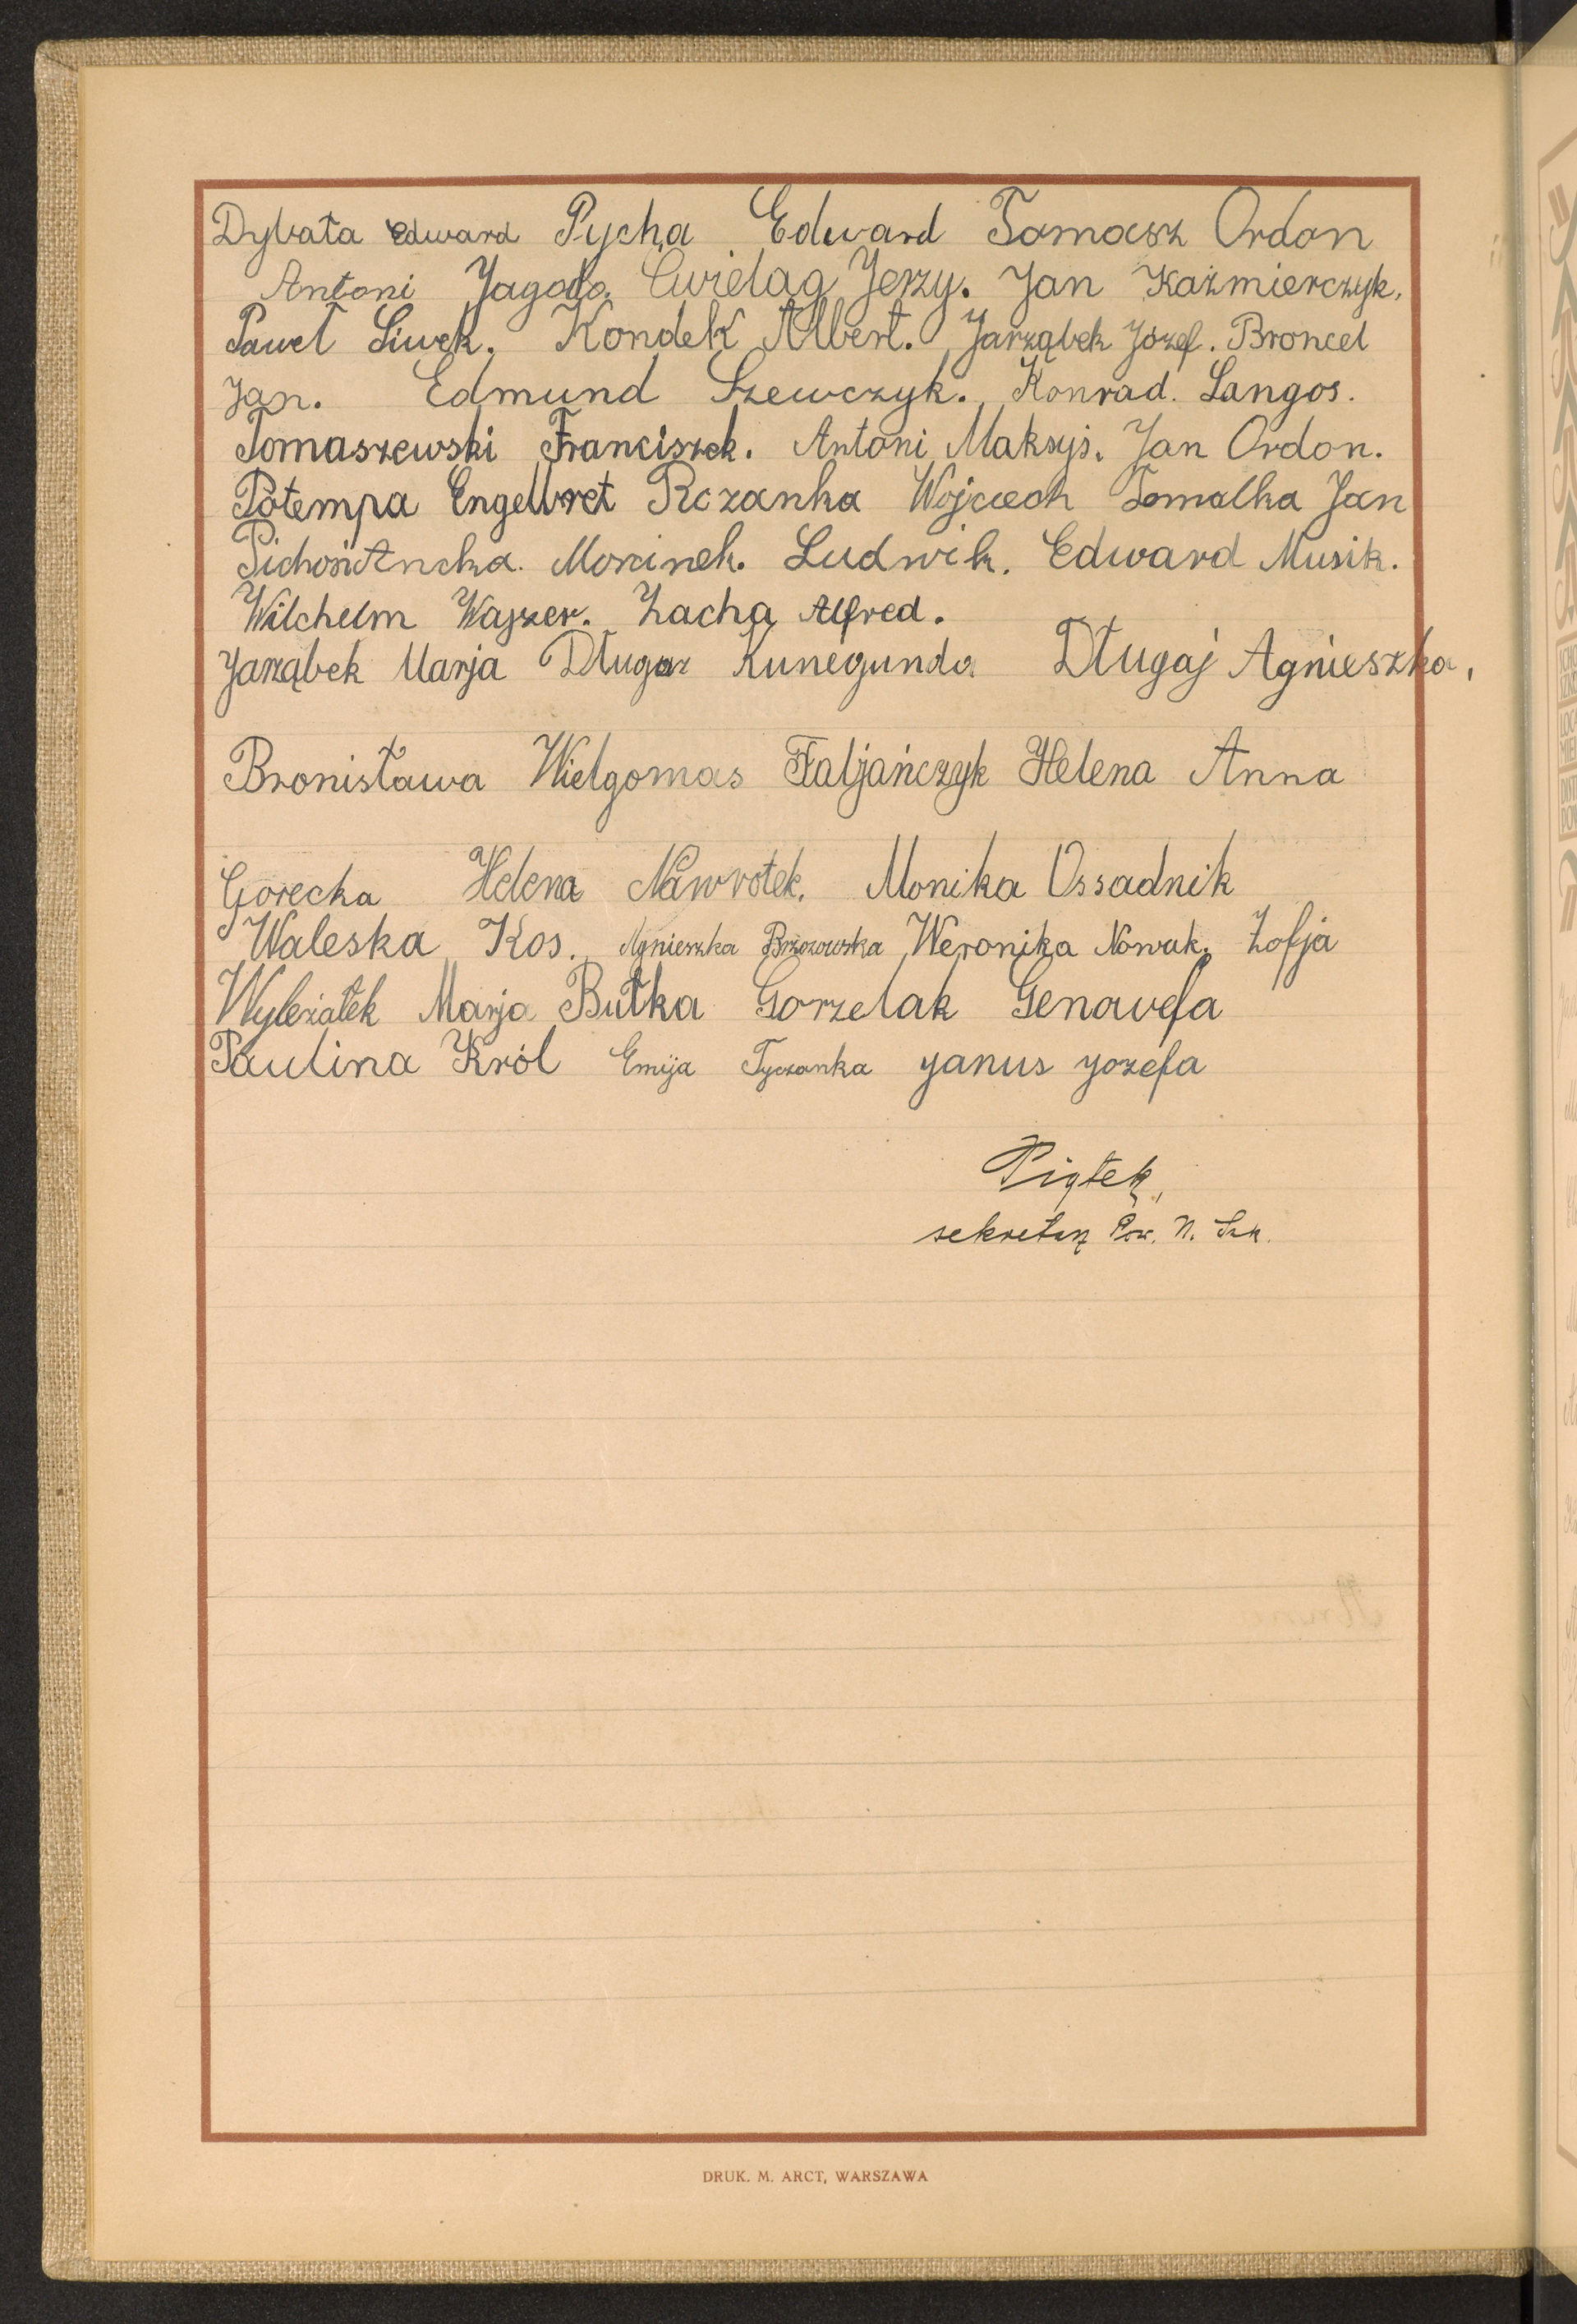 Dybała Edward Pycha Edward Tomasz Ordon
Antoni Jagoda. Cwieląg Jerzy. Jan Kaźmierczyk,
Paweł Siwek. Kondek Albert. Jarząbek Józef. Broncel
Jan. Edmund Szewczyk. Konrad. Langos.
Tomaszewski Franciszek. Antoni Maksyś. Jan Ordon.
Potempa Engelbret Rozanka Wojciech Tomalka Jan
Pichoń Morcinek. Ludwik. Edward Musik.
Wilchelm Wajzer. Zacha Alfred.
Jarząbek Marja Długaj Kunegunda Długaj Agnieszka,
Bronisława Wielgomas Faljańczyk Helena Anna
Gorecka Helena Nawrotek. Monika Ossadnik
Waleska Kos. Agnieszka Brzozowska Weronika Nowak. Zofja
Wyleżałek Marja Butka Gorzelak Genowefa
Paulina Król Emija Tyczanka Janus Jozefa
Piątek,
sekretarz Pow. N. Szk.
DRUK. M. ARCT, WARSZAWA